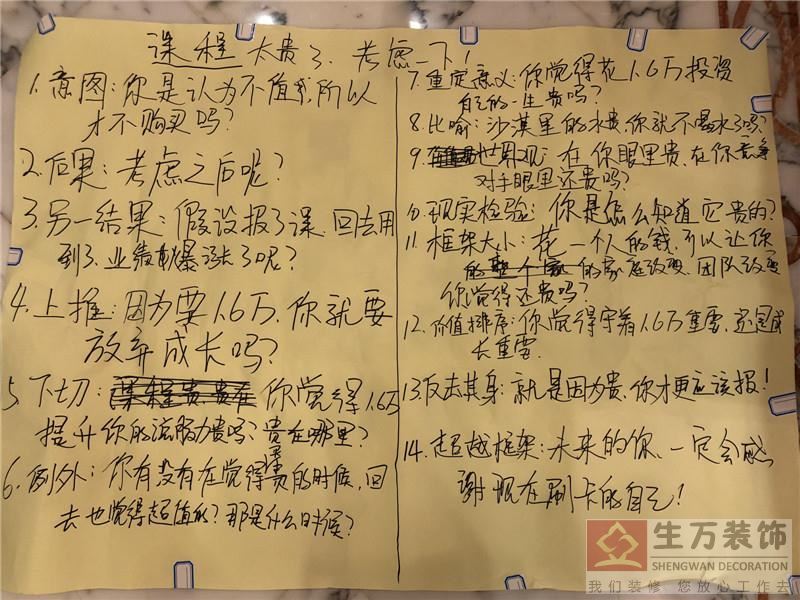 课程太贵了，考虑一下！
1.意图：你是认为不值我,所以
才不购买吗？
2.后果：考虑之后呢？
3.另一结果：假设报了课,回去用
到了,业绩就暴涨了呢？
4.上推：因为要1.6万,你就要
放弃成长吗？
5.下切：你觉得1.6万
提升你的说服力贵吗？贵在哪里？
6.例外：你有没有在觉得贵的时候,回
去也觉得超值的？那是什么时候？
7.重定意义：你觉得花1.6万投资
自己的一生贵吗？
8.比喻：沙漠里的水贵,你就不喝水了吗？
9.世界观：在你眼里贵,在你竞争
对手眼里还贵吗？
10.现实检验：你是怎么知道它贵的？
11.框架大小：花一个人的钱,可以让你
的家庭改变,团队改变
你觉得还贵吗？
12.价值排序：你觉得守着1.6万重要,还是成
长重要
13.反击其身：就是因为贵,你才更应该报！
14.超越框架：未来的你,一定会感
谢现在刷卡的自己！
生万装饰
SHENGWAN DECORATION
我们装修 您放心工作去